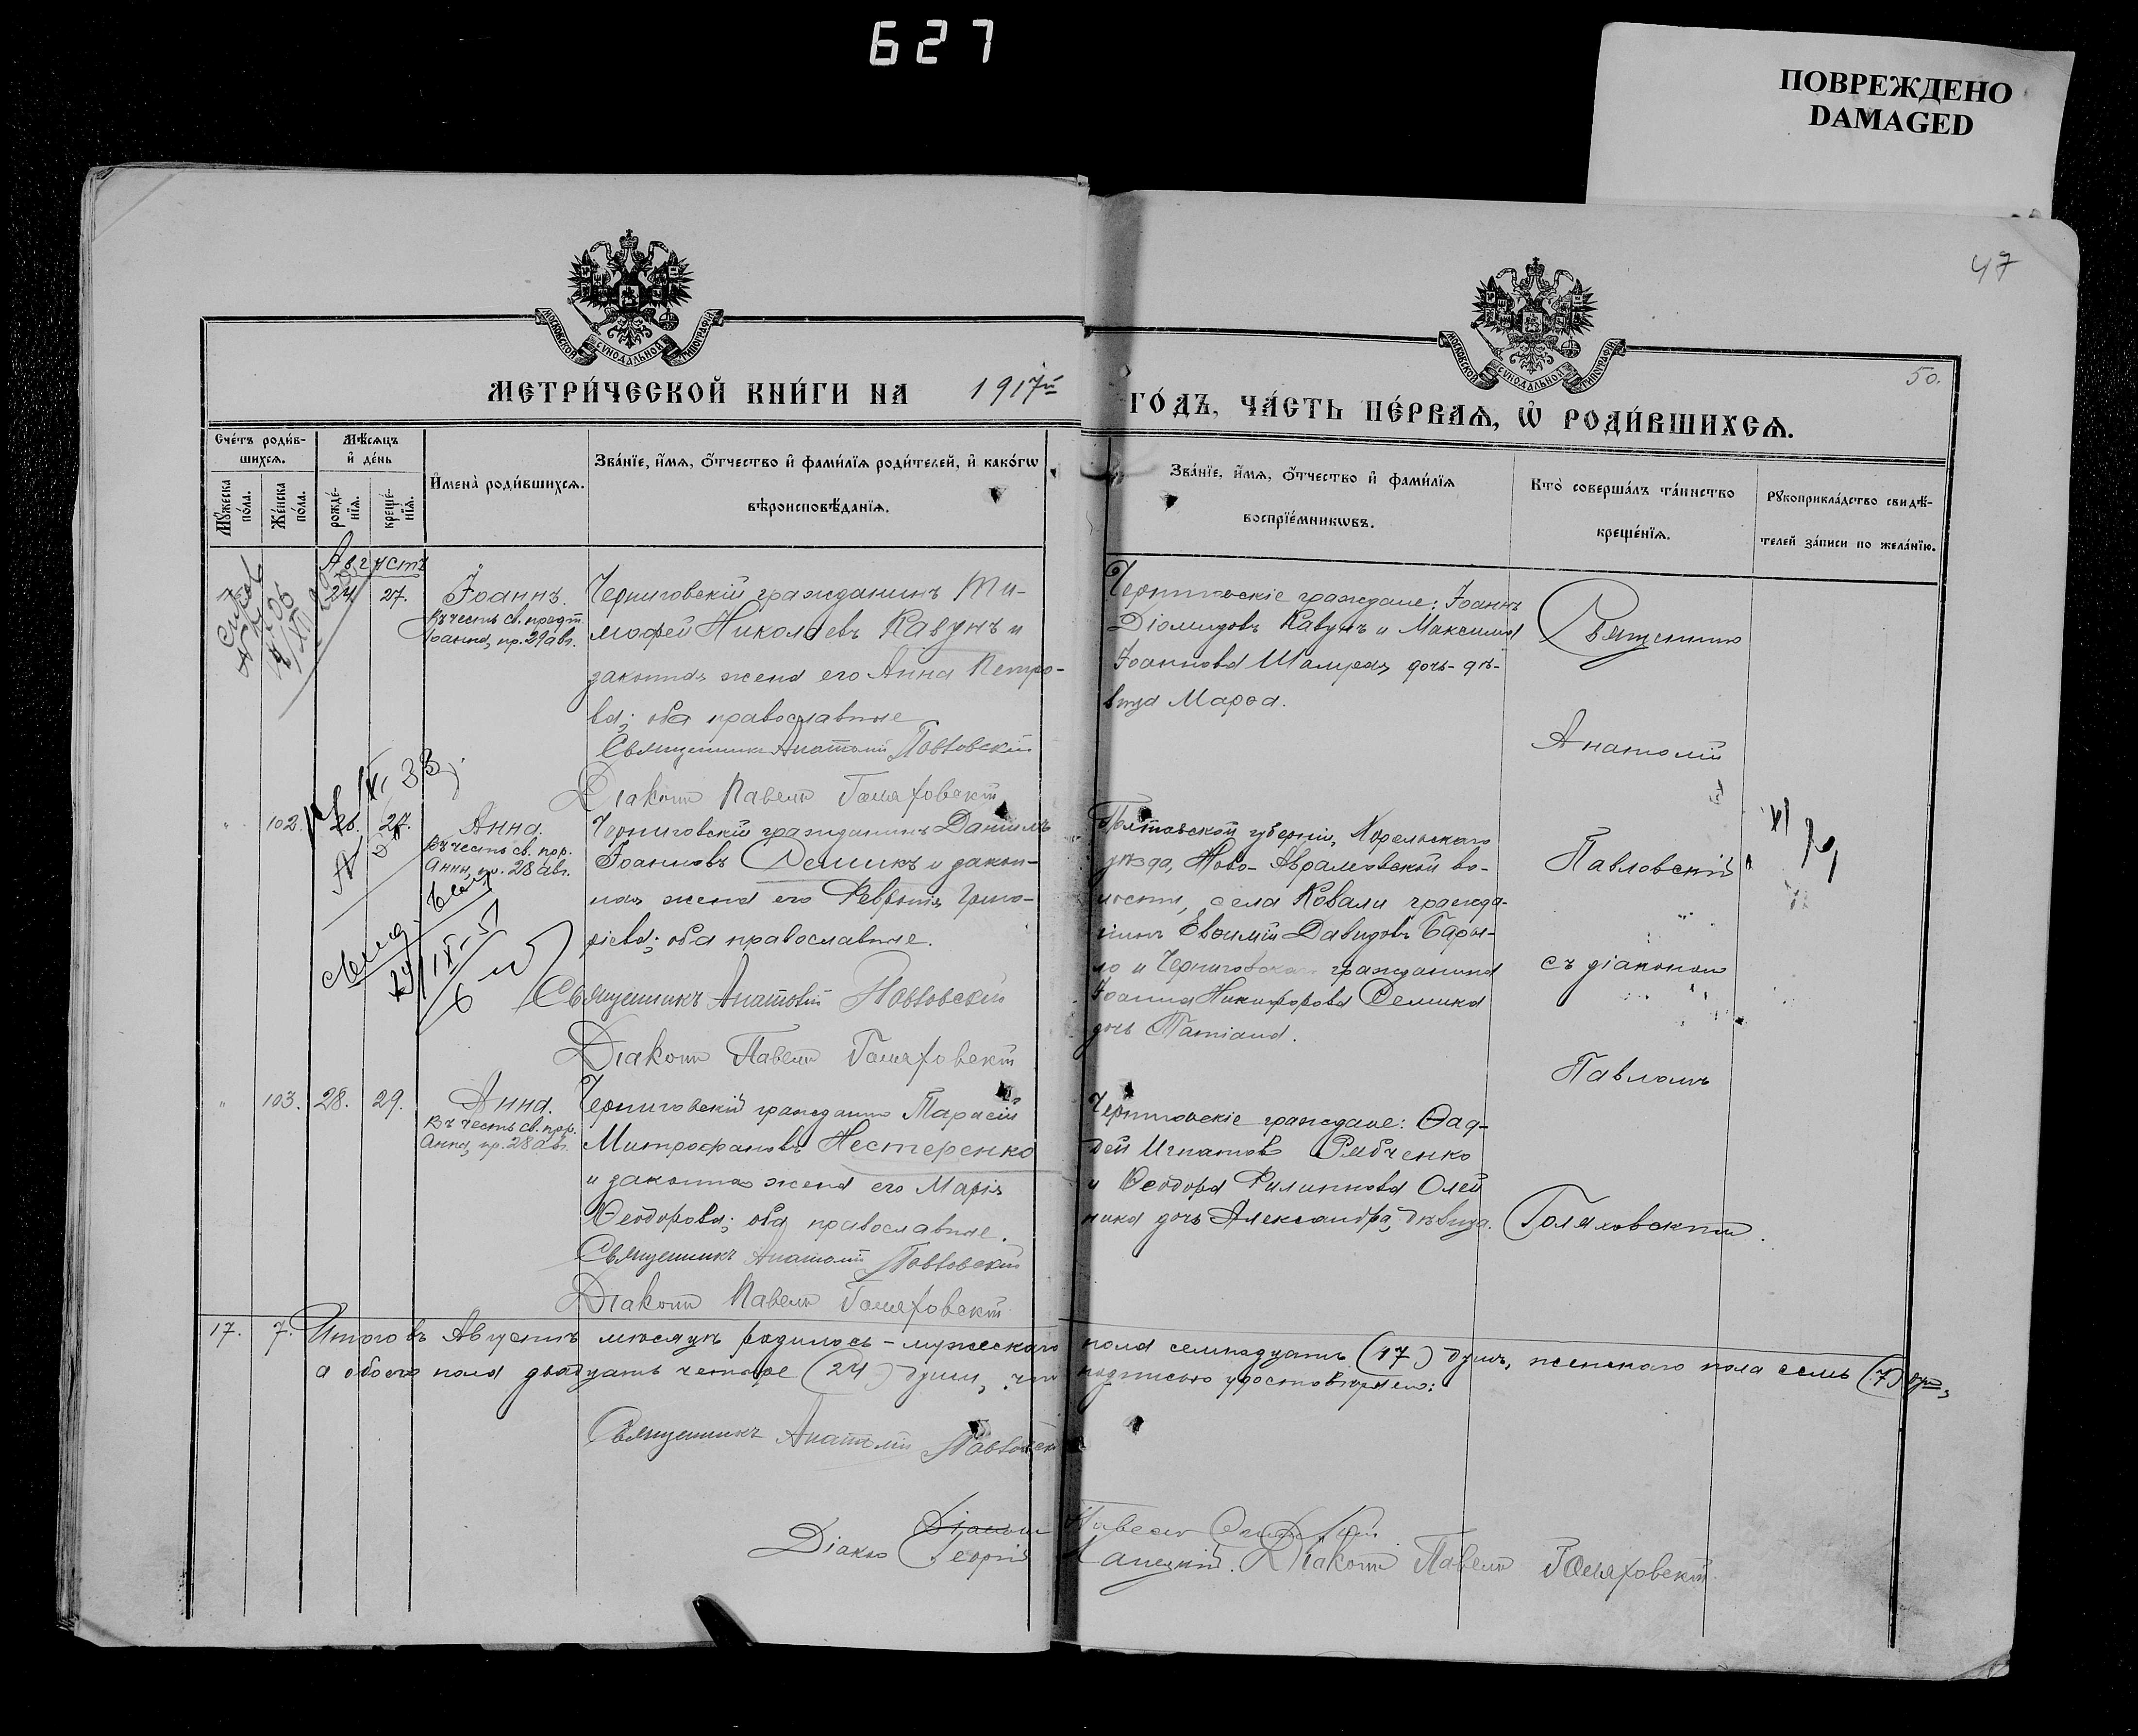 627
ПОВРЕЖДЕНО
DAMAGED
47
50.
МОСКОВСКОЙ СѴНОДАЛЬНОЙ ТИПОГРАФІИ
МОСКОВСКОЙ СѴНОДАЛЬНОЙ ТИПОГРАФІИ
МЕТРИ́ЧЕСКОЙ КНИ́ГИ НА 1917й
ГО́ДЪ, ЧА́СТЬ ПЕ́РВАѦ, Ѽ РОДИ́ВШИХСѦ.
Сче́тъ роди́в-
шихсѧ.
Мꙋ́жеска по́ла.
Же́нска по́ла.
Мѣ́сѧцъ
и҆ де́нь
рожде́-
нїѧ.
креще́-
нїѧ.
И҆мена̀ роди́вшихсѧ.
Зва́нїе, и҆́мѧ, ѻ҆́тчество и҆ фами́лїѧ роди́телей, и҆ како́гѡ
вѣроисповѣ́данїѧ.
Зва́нїе, и҆́мѧ, ѻ҆́тчество и҆ фами́лїѧ
воспрїе́мникѡвъ.
Кто̀ соверша́лъ та́инство
креще́нїѧ.
Рꙋкоприкла́дство свидѣ́-
телей за́писи по жела́нїю.
Августъ
24 27.
Іоаннъ.
Въ честь св. предт.
Іоанна, пр. 29 авг.
Черниговскій гражданинъ Ти-
мофей Николаевъ Кавунъ и
законная жена его Анна Петро-
ва; оба православные
Священникъ Анатолій Павловскій
Діаконъ Павелъ Голяховскій
Черниговскіе граждане: Іоаннъ
Діомидовъ Кавунъ и Максима
Іоаннова дочь-дѣ-
вица Марѳа.
Священникъ
Анатолій
Павловскій
съ діакономъ
Павломъ
Голяховскимъ.
102. 26. 27.
Анна.
Въ честь св. пор.
Анны, пр. 28 авг.
Черниговскій гражданинъ Даніилъ
Іоанновъ Семикъ и закон-
ная жена его Февронія Григо-
ріева; оба православные.
Священникъ Анатолій Павловскій
Діаконъ Павелъ Голяховскій
Полтавской губерніи, Хорольскаго
уѣзда, Ново-Аврамовской во-
лости, села Ковали гражда-
нинъ Евѳимій Давидовъ
и Черниговскаго гражданина
Іоанна Никифорова Семика
дочь Татіана.
103. 28. 29.
Анна.
Въ честь св. прр.
Анны, пр. 28 авг.
Черниговскій гражданинъ Тарасій
Митрофановъ Нестеренко
и законная жена его Марія
Ѳеодорова; оба православные.
Священникъ Анатолій Павловскій
Діаконъ Павелъ Голяховскій
Черниговскіе граждане: Ѳад-
дей Игнатовъ Рябченко
и Ѳеодора Филиппова Олей
ника дочь Александра, дѣвица.
17. 7. Итого въ Августѣ мѣсяцѣ родилось - мужескаго пола семнадцать (17) душъ, женскаго пола семь (7) душъ,
а обоего пола двадцать четыре (24) души, что подписью удостовѣряемъ:
Священникъ Анатолій Павловскій
Діаконъ
Діаконъ Георгій
Діаконъ Павелъ Голяховскій.